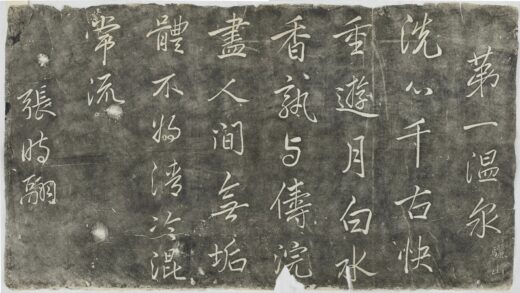 第一温泉
洗心千古快
重遊月白水
香孰与儔浣
盡人间無垢
體不妨清泠混
常流
張時翮